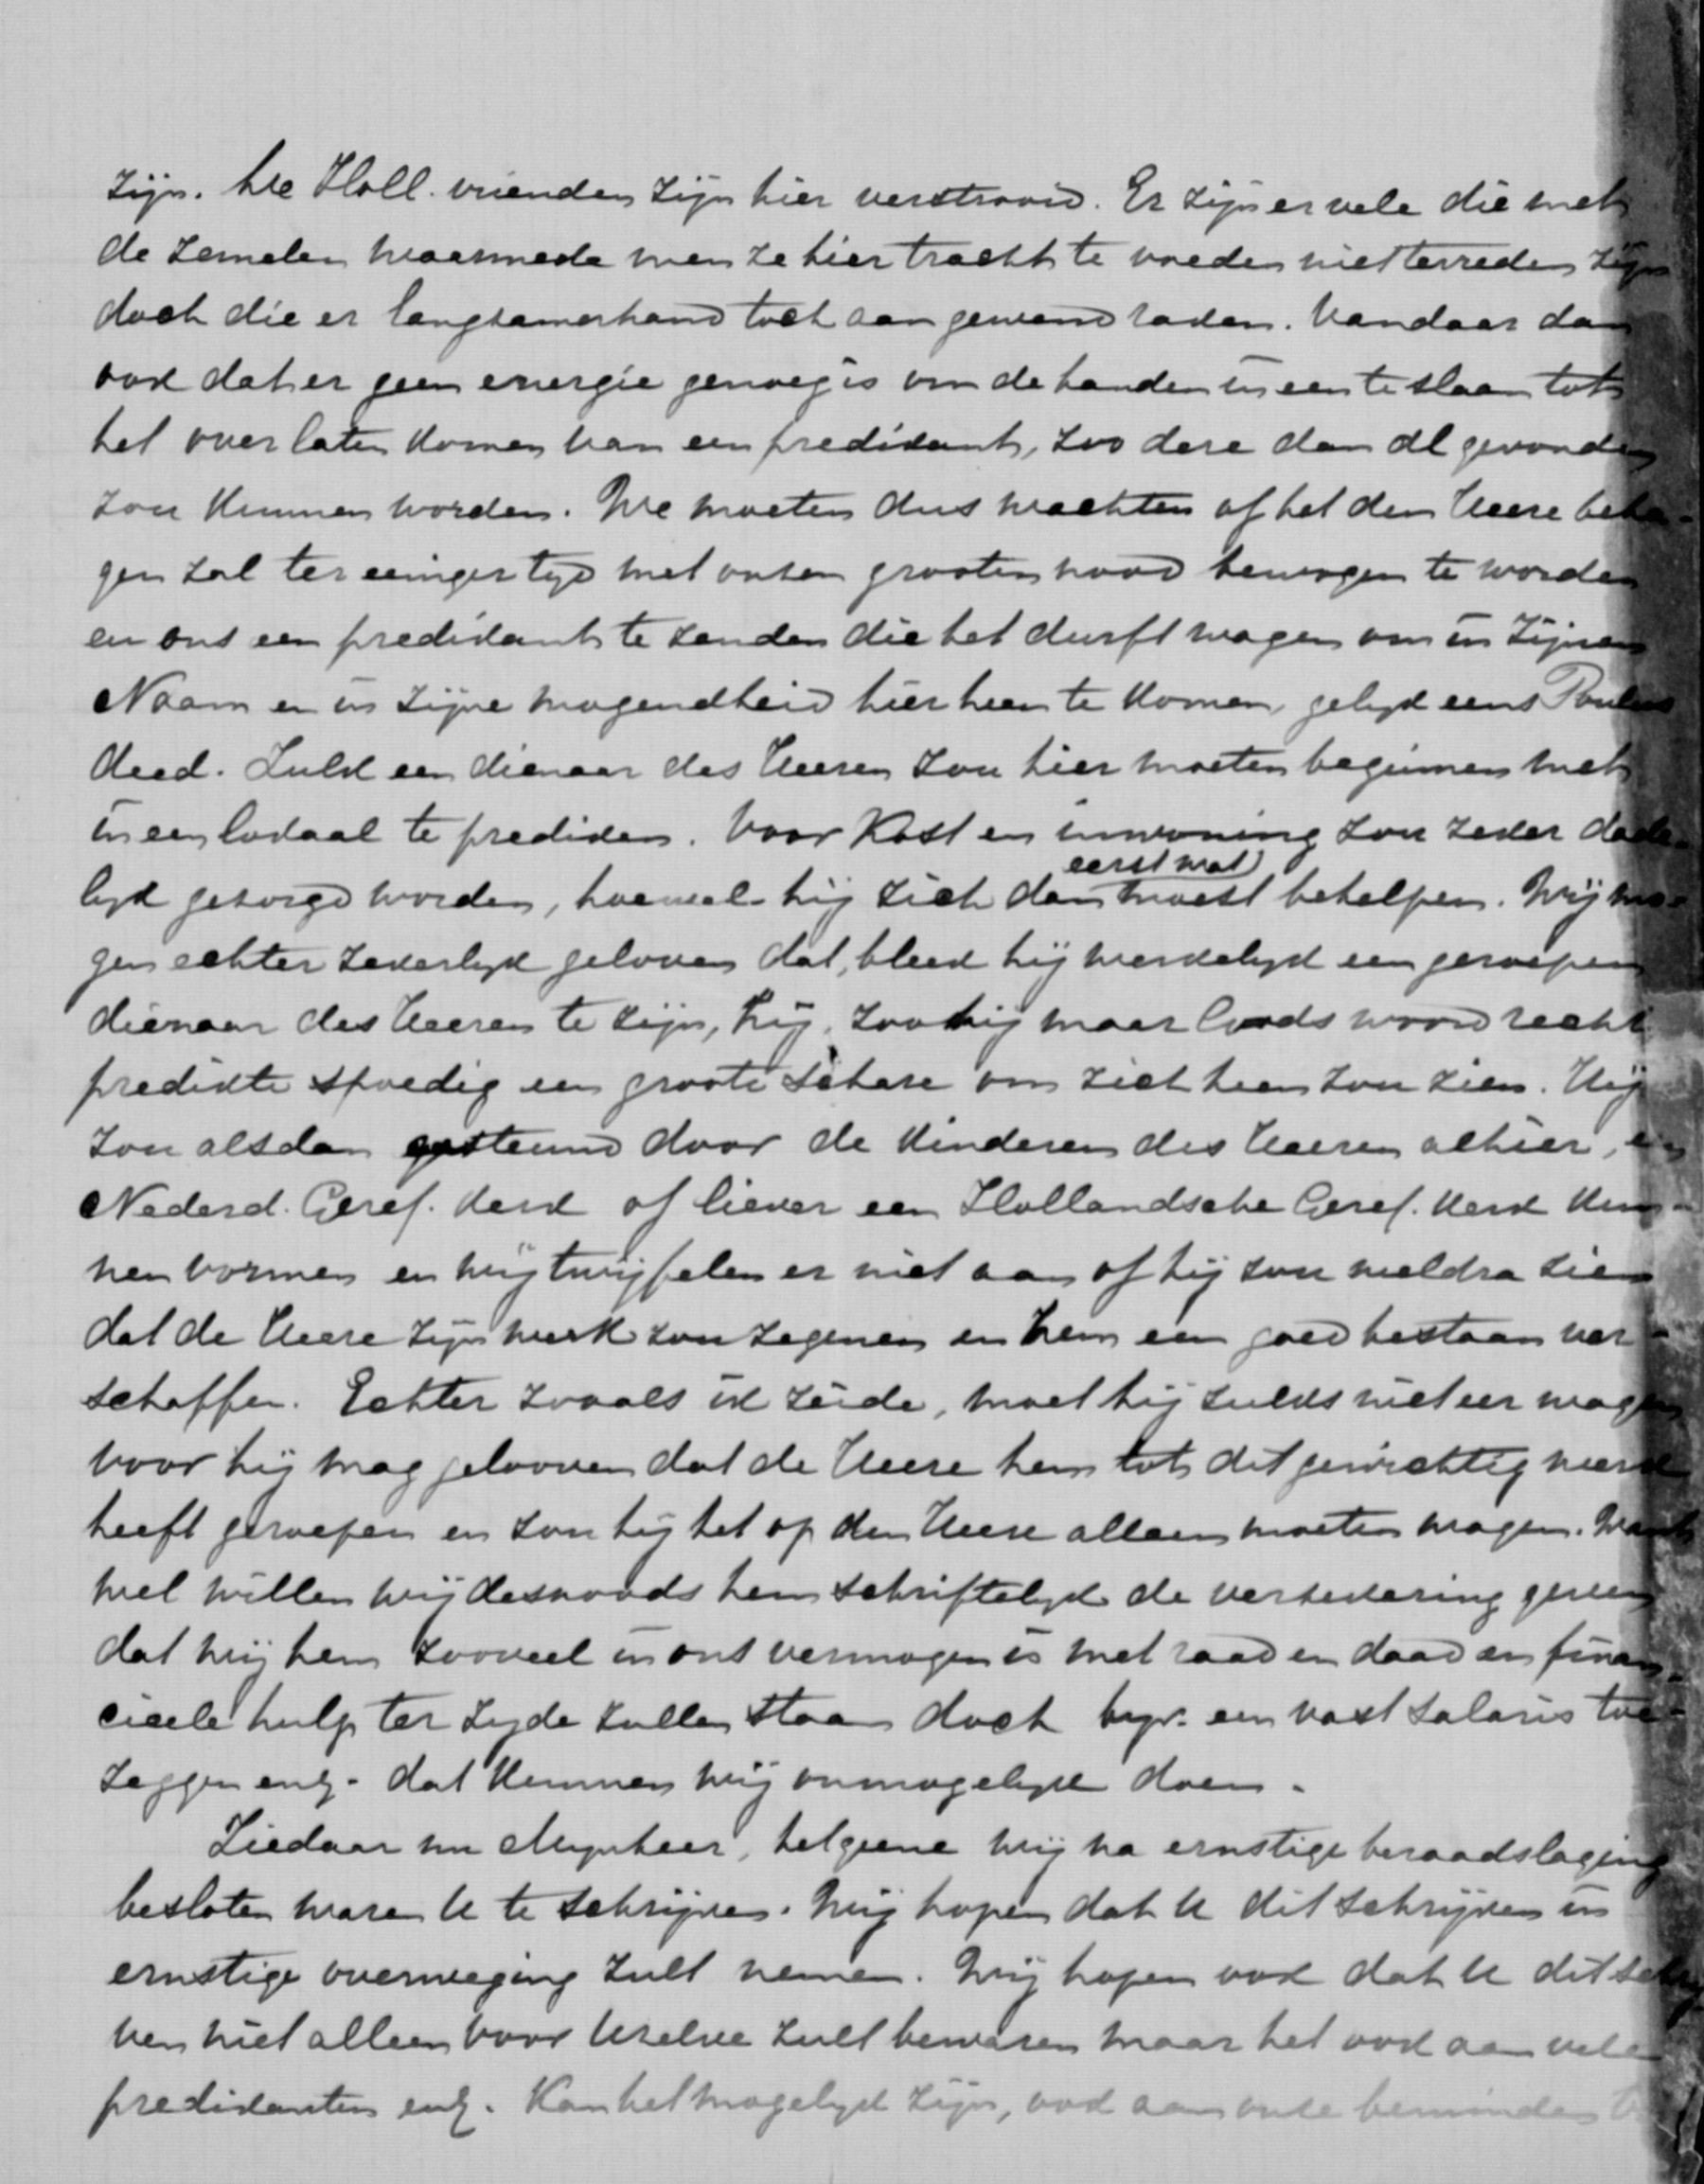 zijn. De Holl. vrienden zijn hier verstrooid. Er zijn er vele die met
de zemelen waarmede men ze hier tracht te voeden niet tevreden zijn
doch die er langsamerhand toch aan gewend raden. Vandaar dan
ook dat er geen energie genoeg is om de handen in een te slaan tot
het over laten komen van een predikant, zoo deze dan al gevonden
zou kunnen worden. We moeten dus wachten of het den Heere beha-
gen zal ter eeniger tyd met onsen grooten nood bewogen te worden
en ons een predikant te zenden die het durft wagen om in Zijnen
Naam en in Zijne mogendheid hier heen te komen, gelyk eens Paulus
deed. Zulk een dienaar des Heeren zou hier moeten beginnen met
in een lokaal te prediken. Voor Kost en inwoning zou zeker dade-
lyk gezorgd worden, hoewel hij zich dan eerst wat moest behelpen. Wij mo-
gen echter zekerlyk geloven dat, bleek hij werkelyk een geroepen
dienaar des Heeren te zijn, hij, zoo hij maar Gods woord recht
predikte spoedig een groote schare om zich heen zou zien. Hij
zou alsdan gesteund door de kinderen des Heeren alhier, een
Nederd. Geref. kerk of liever een Hollandsche Geref. kerk kun-
nen vormen en wij twijfelen er niet aan of hij zou weldra zien
dat de Heere zijn werk zou zegenen en hem een goed bestaan ver-
schaffen. Echter zooals ik zeide, moet hij zulks niet eer wagen
voor hij mag gelooven dat de Heere hem tot dit gewichtig werk
heeft geroepen en zou hij het op den Heere alleen moeten wagen. Want
wel willen wij desnoods hem schriftelyk de verzekering geven
dat wij hem zooveel in ons vermogen is met raad en daad en finan-
cieele hulp ter zyde zullen staan doch byv. een vast salaris toe-
zeggen enz. dat kunnen wij onmogelyk doen.
Ziedaar nu Mynheer, hetgeene wij na ernstige beraadslaging
besloten waren U te schrijven. Wij hopen dat U dit schrijven in
ernstige overweging zult nemen. Wij hopen ook dat U dit schrij
ven niet alleen voor Uzelve zult bewaren maar het ook aan vele
predikanten enz. Kan het mogelyk zijn, ook aan onze beminden